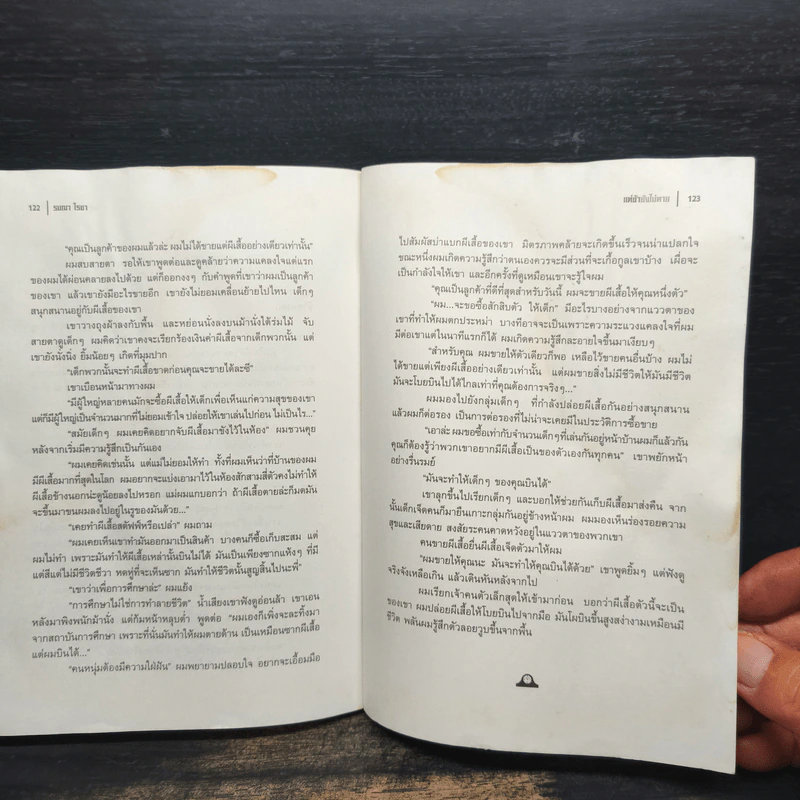 122 | รมณา โรชา
“คุณเป็นลูกค้าของผมแล้วล่ะ ผมไม่ได้ขายแต่ผีเสื้ออย่างเดียวเท่านั้น”
ผมสบสายตา รอให้เขาพูดต่อและดูคล้ายว่าความแคลงใจแต่แรก
ของผมได้ผ่อนคลายลงไปด้วย แต่ก็ออกงงๆ กับคำพูดที่เขาว่าผมเป็นลูกค้า
ของเขา แล้วเขายังมีอะไรขายอีก เขายังไม่ยอมเคลื่อนย้ายไปไหน เด็กๆ
สนุกสนานอยู่กับผีเสื้อของเขา
เขาวางถุงผ้าลงกับพื้น และหย่อนนั่งลงบนม้านั่งใต้ร่มไม้ จับ
สายตาดูเด็กๆ ผมคิดว่าเขาคงจะเรียกร้องเงินค่าผีเสื้อจากเด็กพวกนั้น แต่
เขายังนั่งนิ่ง ยิ้มน้อยๆ เกิดที่มุมปาก
“เด็กพวกนั้นจะทำผีเสื้อขาดก่อนคุณจะขายได้ละซี”
เขาเบือนหน้ามาทางผม
“มีผู้ใหญ่หลายคนมักจะซื้อผีเสื้อให้เด็กเพื่อเห็นแก่ความสุขของเขา
แต่ก็มีผู้ใหญ่เป็นจำนวนมากที่ไม่ยอมเข้าใจ ปล่อยให้เขาเล่นไปก่อน ไม่เป็นไร...”
“สมัยเด็กๆ ผมเคยคิดอยากจับผีเสื้อมาขังไว้ในห้อง” ผมชวนคุย
หลังจากเริ่มมีความรู้สึกเป็นกันเอง
“ผมเคยคิดเช่นนั้น แต่แม่ไม่ยอมให้ทำ ทั้งที่ผมเห็นว่าที่บ้านของผม
มีผีเสื้อมากที่สุดในโลก ผมอยากจะแบ่งเอามาไว้ในห้องสักสามสี่ตัวคงไม่ทำให้
ผีเสื้อข้างนอกน่ะดูน้อยลงไปหรอก แม่ผมแกบอกว่า ถ้าผีเสื้อตายล่ะก็มดมัน
จะขึ้นมาขนผมลงไปอยู่ในรูของมันด้วย...”
“เคยทำผีเสื้อสตัฟฟ์หรือเปล่า” ผมถาม
“ผมเคยเห็นเขาทำมันออกมาเป็นสินค้า บางคนก็ซื้อเก็บสะสม แต่
ผมไม่ทำ เพราะมันทำให้ผีเสื้อเหล่านั้นบินไม่ได้ มันเป็นเพียงซากแห้งๆ ที่มี
แต่สีแต่ไม่มีชีวิตชีวา หดหู่ที่จะเห็นซาก มันทำให้ชีวิตนั้นสูญสิ้นไปนะพี่”
“เขาว่าเพื่อการศึกษาล่ะ” ผมแย้ง
“การศึกษาไม่ใช่การทำลายชีวิต” น้ำเสียงเขาฟังดูอ่อนล้า เขาเอน
หลังมาพิงพนักม้านั่ง แต่ก้มหน้าหลุบต่ำ พูดต่อ “ผมเองก็เพิ่งจะละทิ้งมา
จากสถาบันการศึกษา เพราะที่นั่นมันทำให้ผมตายด้าน เป็นเหมือนซากผีเสื้อ
แต่ผมบินได้...”
“คนหนุ่มต้องมีความใฝ่ฝัน” ผมพยายามปลอบใจ อยากจะเอื้อมมือ
แต่ผีมันไม่ตาย | 123
ไปสัมผัสบ่าแบกผีเสื้อของเขา มิตรภาพคล้ายจะเกิดขึ้นเร็วจนน่าแปลกใจ
ขณะหนึ่งผมเกิดความรู้สึกว่าตนเองควรจะมีส่วนที่จะเกื้อกูลเขาบ้าง เผื่อจะ
เป็นกำลังใจให้เขา และอีกครั้งที่ดูเหมือนเขาจะรู้ใจผม
“คุณเป็นลูกค้าที่ดีที่สุดสำหรับวันนี้ ผมจะขายผีเสื้อให้คุณหนึ่งตัว”
“ผม...จะขอซื้อสักสิบตัว ให้เด็ก” มีอะไรบางอย่างจากแววตาของ
เขาที่ทำให้ผมตกประหม่า บางทีอาจจะเป็นเพราะความระแวงแคลงใจที่ผม
มีต่อเขาแต่ในนาทีแรกก็ได้ ผมเกิดความรู้สึกละอายใจขึ้นมาเงียบๆ
“สำหรับคุณ ผมขายให้ตัวเดียวก็พอ เหลือไว้ขายคนอื่นบ้าง ผมไม่
ได้ขายแต่เพียงผีเสื้ออย่างเดียวเท่านั้น แต่ผมขายสิ่งไม่มีชีวิตให้มันมีชีวิต
มันจะโบยบินไปได้ไกลเท่าที่คุณต้องการจริงๆ...”
ผมมองไปยังกลุ่มเด็กๆ ที่กำลังปล่อยผีเสื้อกันอย่างสนุกสนาน
แล้วผมก็ต่อรอง เป็นการต่อรองที่ไม่น่าจะเคยมีในประวัติการซื้อขาย
“เอาล่ะ ผมขอซื้อเท่ากับจำนวนเด็กๆที่เล่นกันอยู่หน้าบ้านผมก็แล้วกัน
คุณก็ต้องรู้ว่าพวกเขาอยากมีผีเสื้อเป็นของตัวเองกันทุกคน” เขาพยักหน้า
อย่างรื่นรมย์
“มันจะทำให้เด็กๆ ของคุณบินได้”
เขาลุกขึ้นไปเรียกเด็กๆ และบอกให้ช่วยกันเก็บผีเสื้อมาส่งคืน จาก
นั้นเด็กเจ็ดคนก็มายืนเกาะกลุ่มกันอยู่ข้างหน้าผม ผมมองเห็นร่องรอยความ
สุขและเสียดาย สงสัยระคนคาดหวังอยู่ในแววตาของพวกเขา
คนขายผีเสื้อยื่นผีเสื้อเจ็ดตัวมาให้ผม
“ผมขายให้คุณนะ มันจะทำให้คุณบินได้ด้วย” เขาพูดยิ้มๆ แต่ฟังดู
จริงจังเหลือเกิน แล้วเดินหันหลังจากไป
ผมเรียกเจ้าคนตัวเล็กสุดให้เข้ามาก่อน บอกว่าผีเสื้อตัวนี้จะเป็น
ของเขา ผมปล่อยผีเสื้อให้โบยบินไปจากมือ มันโผบินขึ้นสูงสง่างามเหมือนมี
ชีวิต พลันผมรู้สึกตัวลอยวูบขึ้นจากพื้น